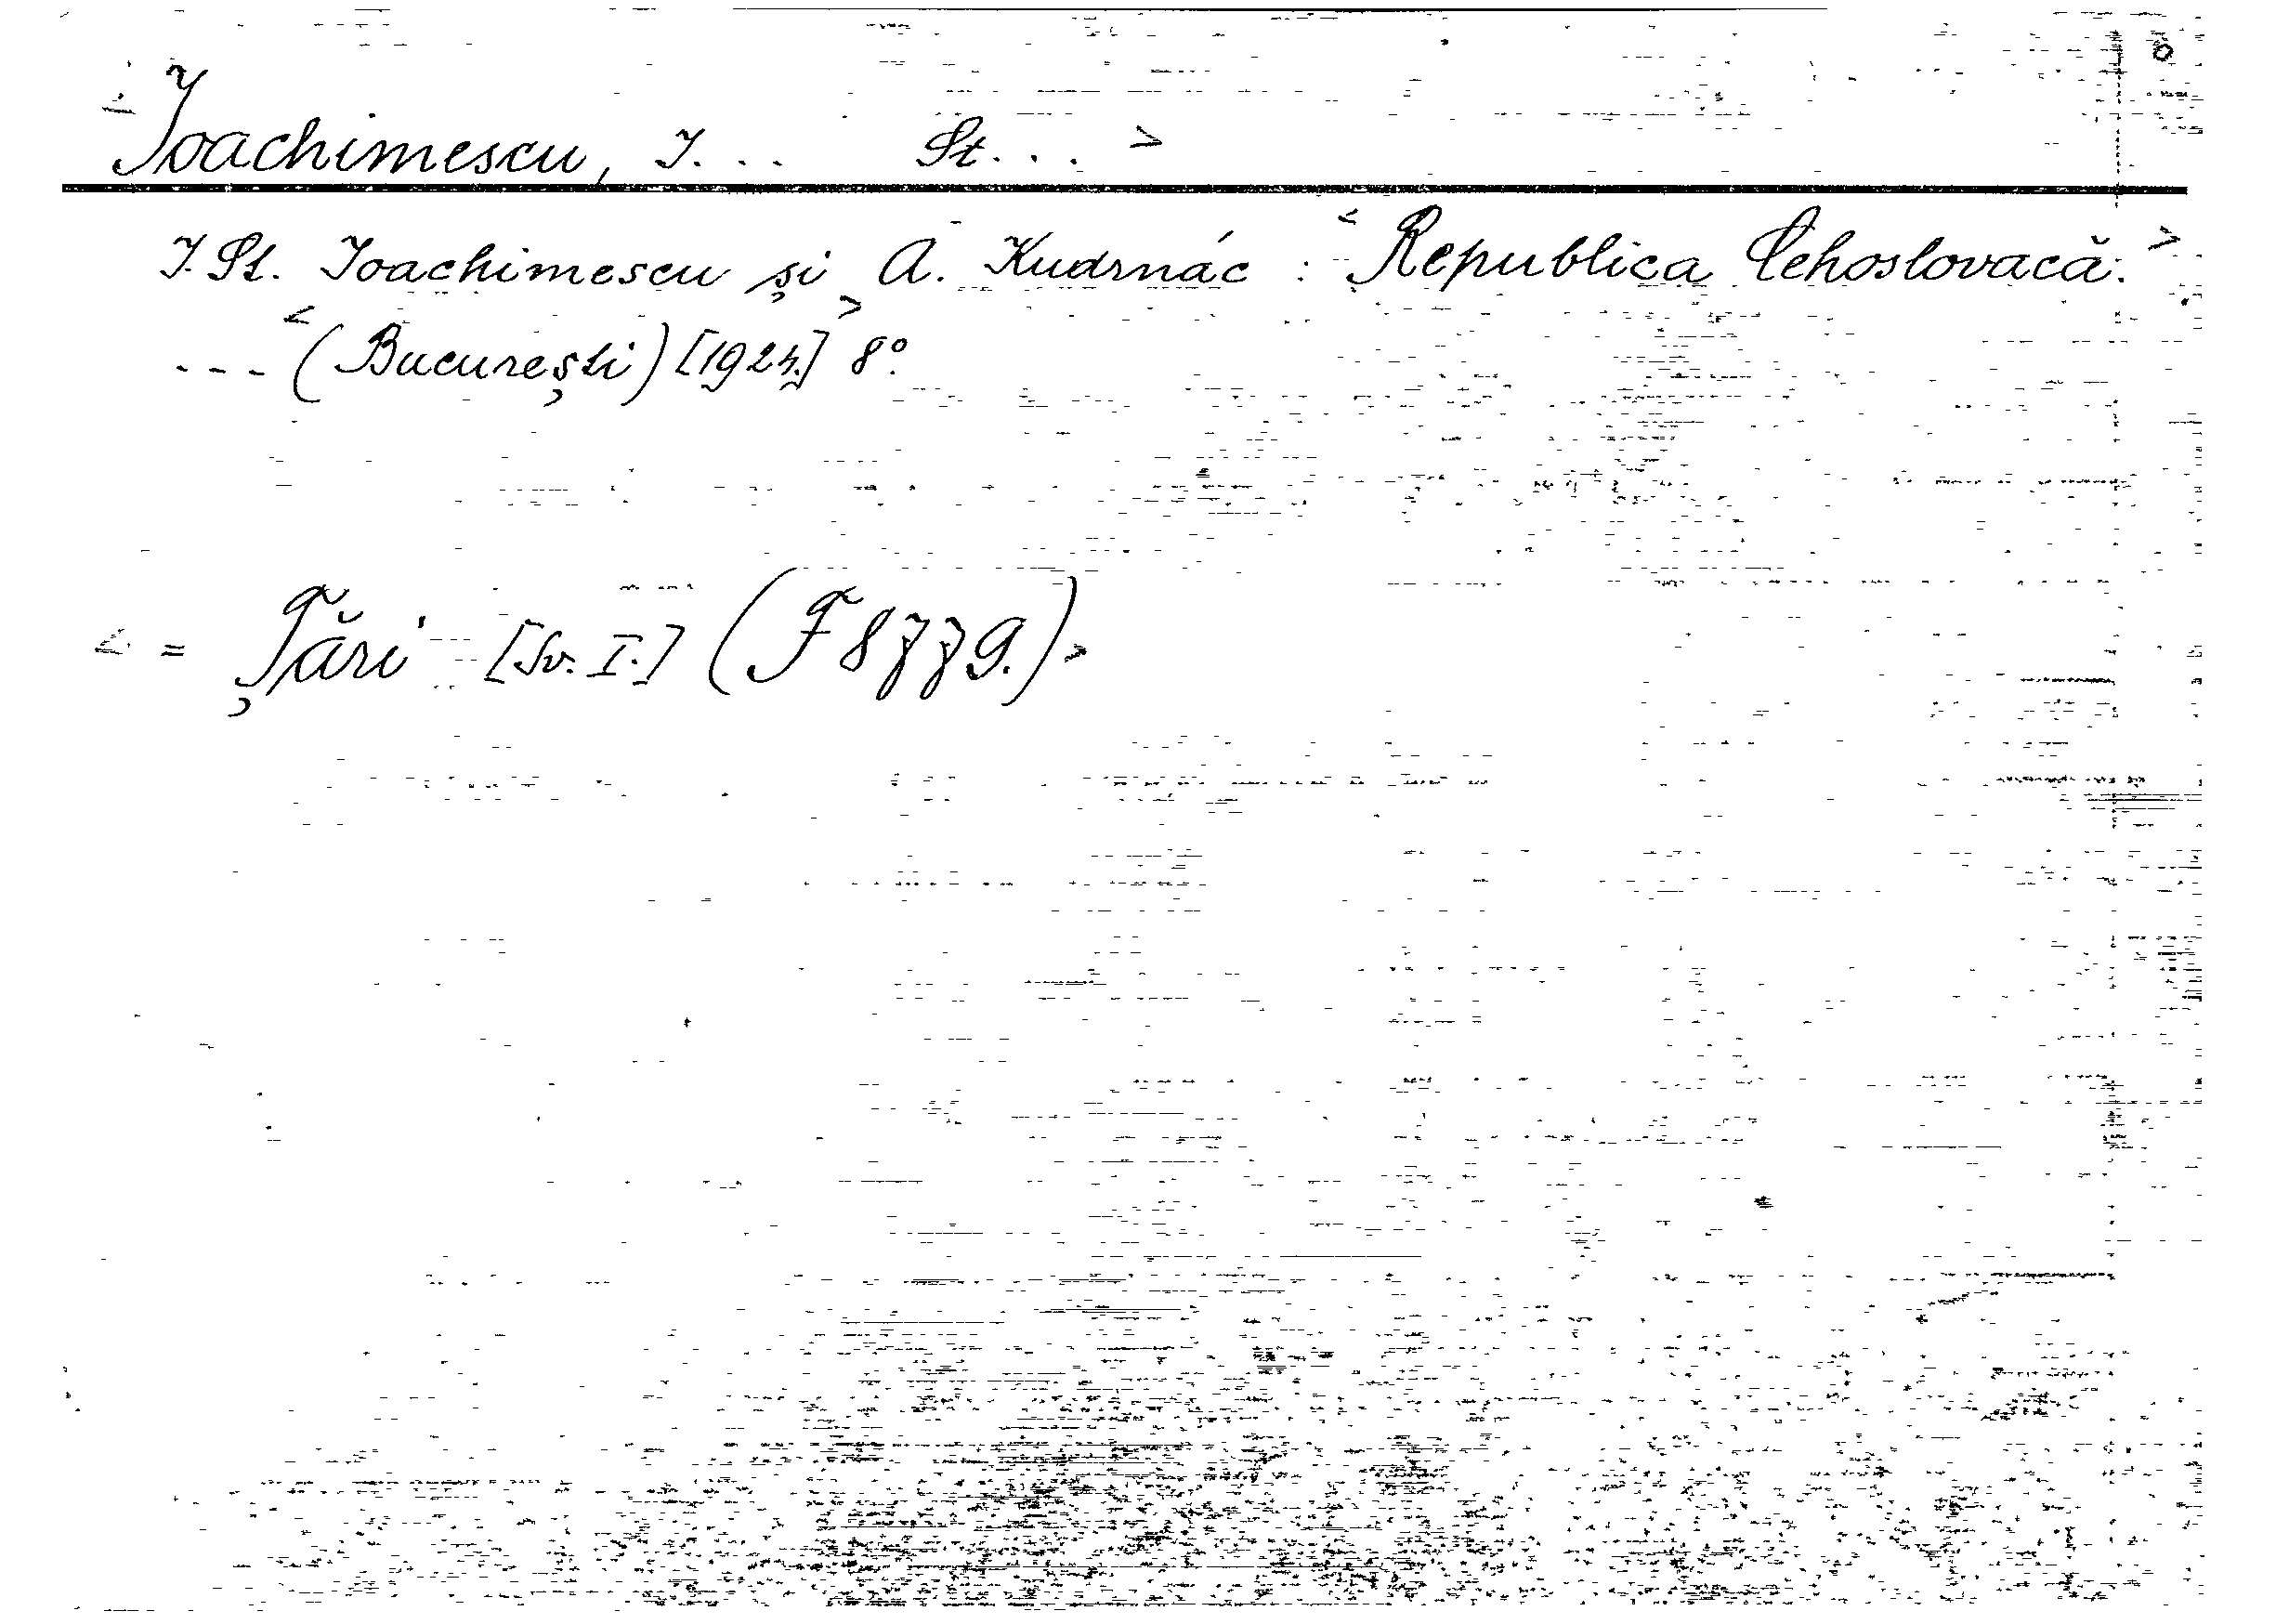 Ioachimescu, I... St... >
I. St. Ioachimescu și A. Kudrnáč : < Republica Cehoslovacă. >
--- < (București) > [1924.] 8°.
< = Țări [Sv. I.] (F 8779.) >